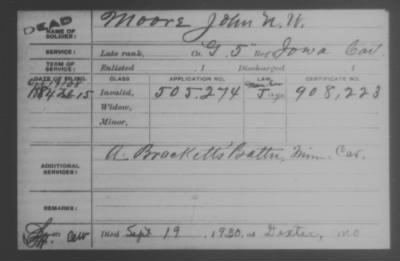 DEAD
NAME OF SOLDIER: Moore John N. W.
SERVICE: Late rank, Co. "G. 5" Reg Iowa Cav
TERM OF SERVICE: Enlisted , 1 Discharged , 1
DATE OF FILING. CLASS APPLICATION NO. LAW. CERTIFICATE NO.
Invalid, 505.274 908,223
Widow,
Minor,
ADDITIONAL SERVICES: A. Brackett's Battn, Minn. Cav.
REMARKS:
Died Sept 19, 1930, at Dexter, Mo